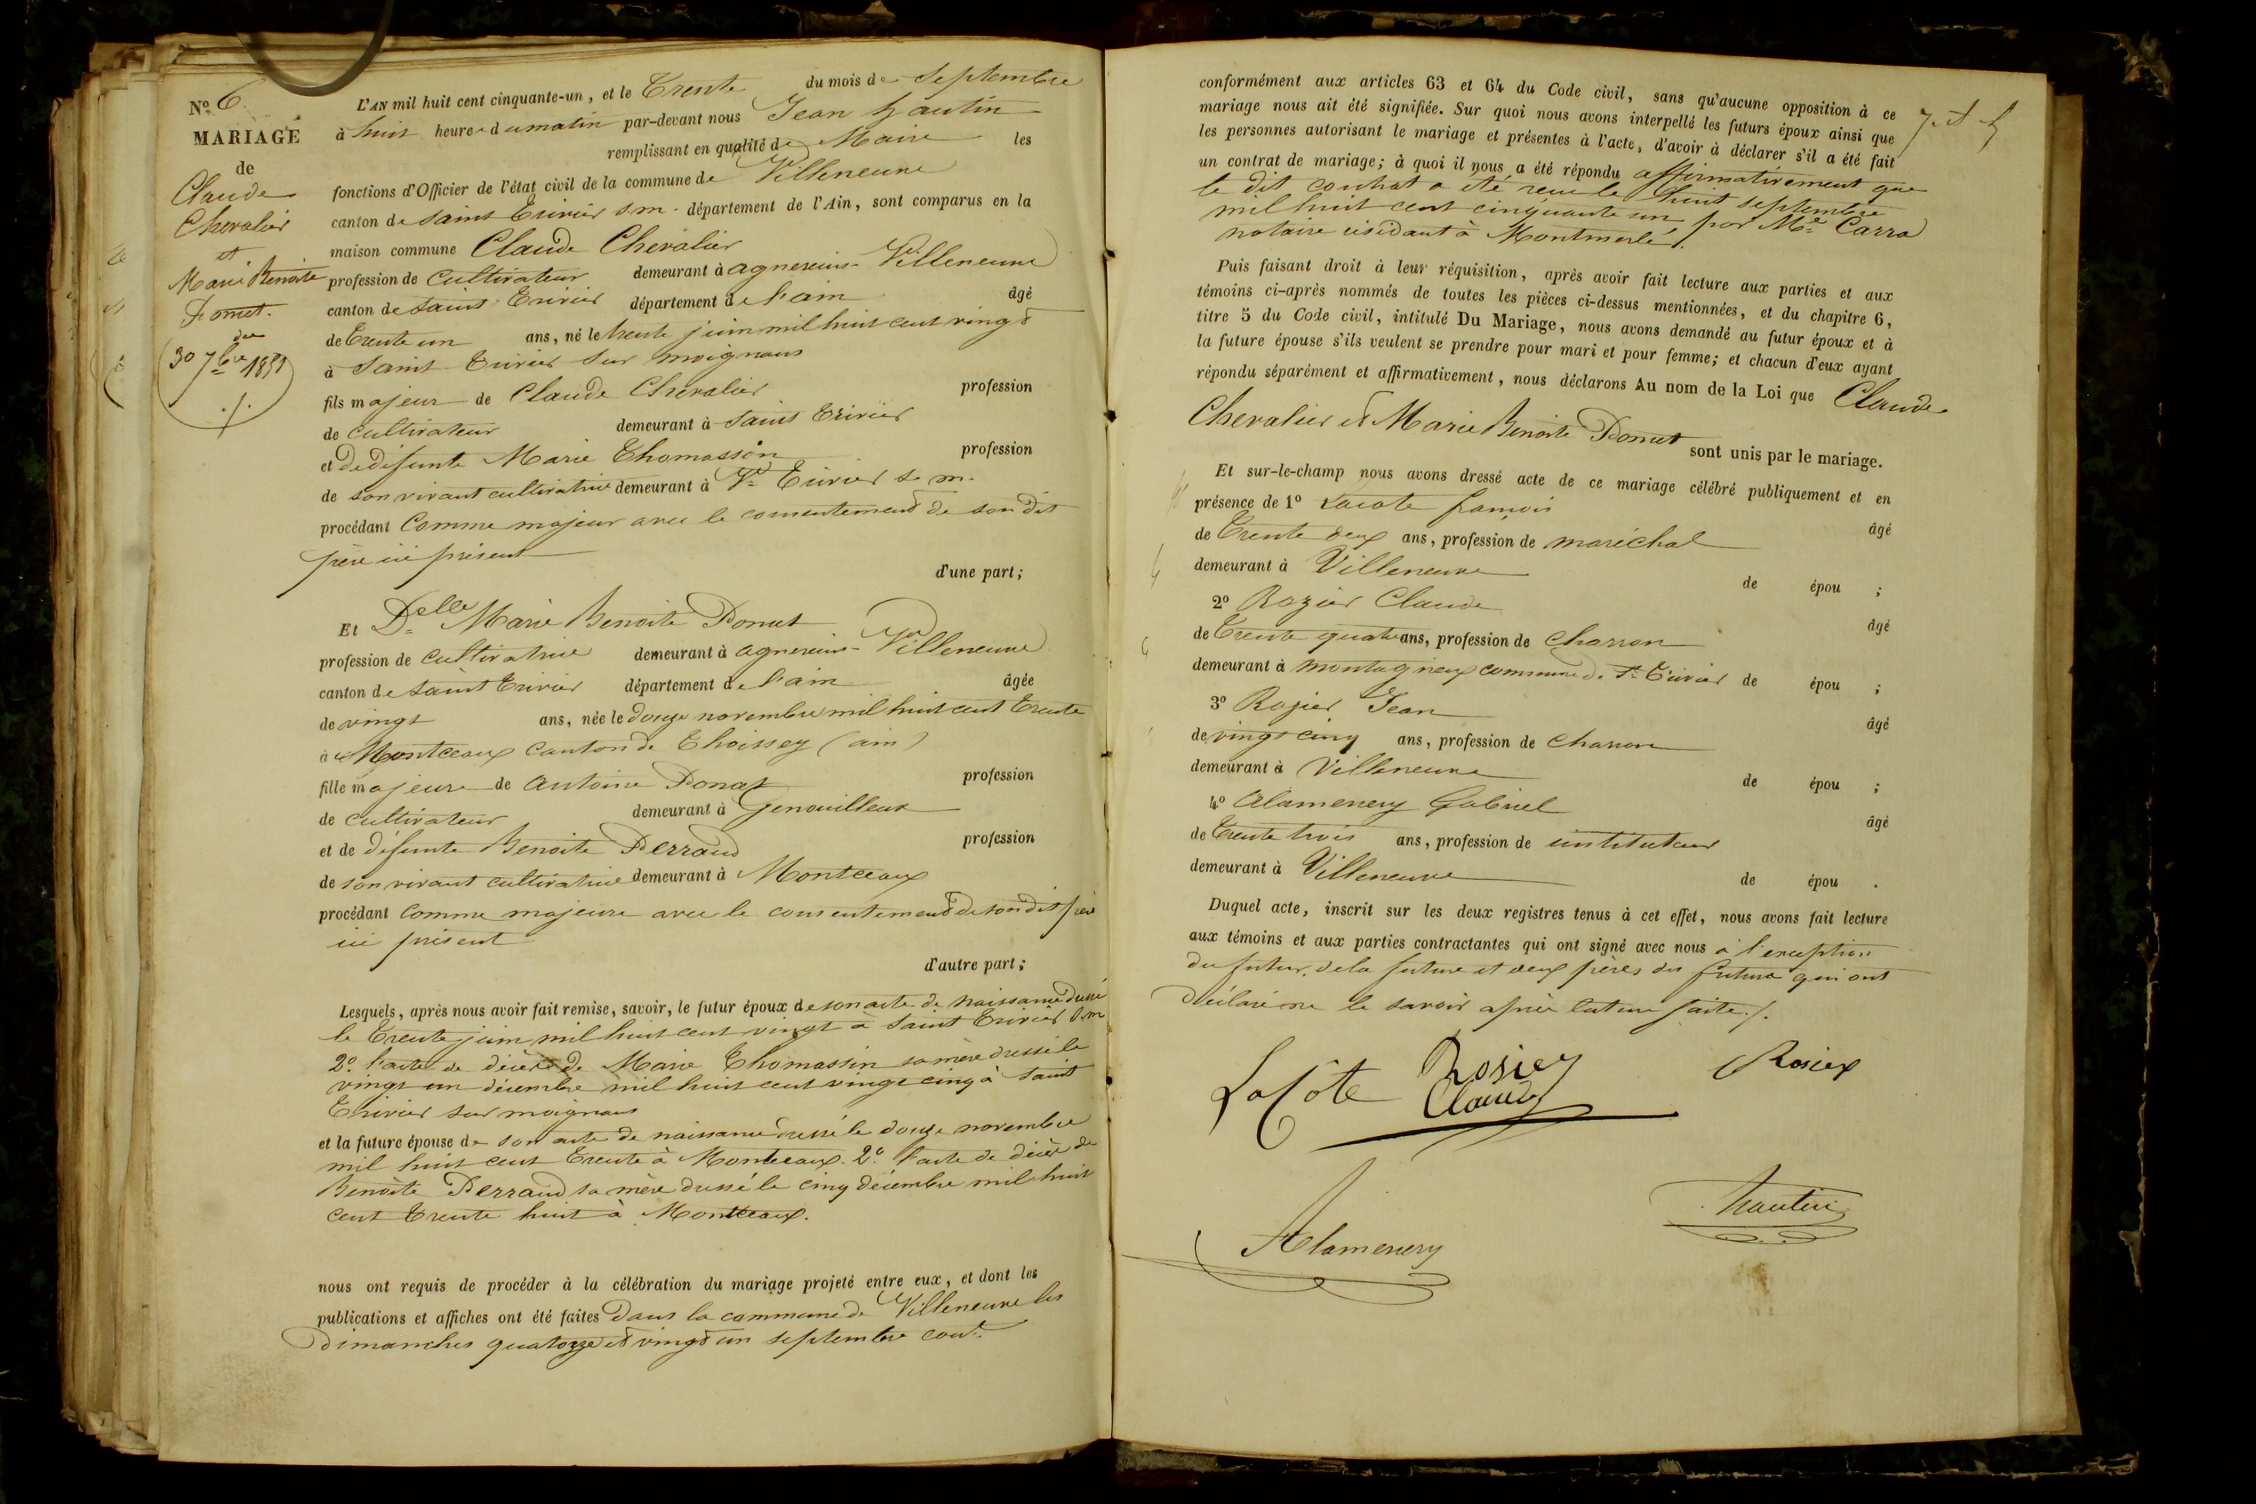 N.º 6.
MARIAGE
de
Claude
Chevalier
et
Marie Benoite
Donut.
du
30 7bre 1851
L'AN mil huit cent cinquante-un, et le Trente du mois de Septembre
à huit heures du matin par-devant nous Jean hautin
remplissant en qualité de Maire les
fonctions d'Officier de l'état civil de la commune de Villeneuve
canton de Saint Trivier s.m. département de l'Ain, sont comparus en la
maison commune Claude Chevalier
profession de cultivateur demeurant à agnereins Villeneuve
canton de Saint Trivier département de l'ain âgé
de Trente un ans, né le trente juin mil huit cent vingt
à Saint Trivier sur moignans
fils majeur de Claude Chevalier profession
de cultivateur demeurant à Saint Trivier
et de défunte Marie Thomasson profession
de son vivant cultivatrice demeurant à St Trivier s. m.
procédant Comme majeur avec le consentement de son dit
père ici présent
d'une part;
Et Delle Marie Benoite Donut
profession de cultivatrice demeurant à agnereins Villeneuve
canton de Saint Trivier département de l'ain âgée
de vingt ans, née le douze novembre mil huit cent Trente
à Montceaux Canton de Thoissey (ain)
fille majeure de Antoine Donat profession
de cultivateur demeurant à Genouilleux
et de défunte Benoite Perraud profession
de son vivant cultivatrice demeurant à Montceaux
procédant Comme majeure avec le consentement de son dit père
ici présent
d'autre part;
Lesquels, après nous avoir fait remise, savoir, le futur époux de son acte de naissance dressé
le Trente juin mil huit cent vingt à Saint Trivier s.m
2º l'acte de décès de Marie Thomassin sa mère dressé le
vingt un décembre mil huit cent vingt cinq à Saint
Trivier sur moignans
et la future épouse de son acte de naissance dressé le douze novembre
mil huit cent Trente à Montceaux. 2º l'acte de décès de
Benoite Perraud sa mère dressé le cinq décembre mil huit
cent Trente huit à Montceaux.
nous ont requis de procéder à la célébration du mariage projeté entre eux, et dont les
publications et affiches ont été faites Dans la commune de Villeneuve les
Dimanches quatorze et vingt un septembre cout.
conformément aux articles 63 et 64 du Code civil, sans qu'aucune opposition à ce
mariage nous ait été signifiée. Sur quoi nous avons interpellé les futurs époux ainsi que
les personnes autorisant le mariage et présentes à l'acte, d'avoir à déclarer s'il a été fait
un contrat de mariage; à quoi il nous a été répondu affirmativement que
le dit contrat a été reçu le huit septembre
mil huit cent cinquante un par Me Carra
notaire résidant à Montmerle.
Puis faisant droit à leur réquisition, après avoir fait lecture aux parties et aux
témoins ci-après nommés de toutes les pièces ci-dessus mentionnées, et du chapitre 6,
titre 5 du Code civil, intitulé Du Mariage, nous avons demandé au futur époux et à
la future épouse s'ils veulent se prendre pour mari et pour femme; et chacun d'eux ayant
répondu séparément et affirmativement, nous déclarons Au nom de la Loi que Claude
Chevalier et Marie Benoite Donut sont unis par le mariage.
Et sur-le-champ nous avons dressé acte de ce mariage célébré publiquement et en
présence de 1º Lacote françois âgé
de Trente deux ans, profession de maréchal
demeurant à Villeneuve de épou ;
2º Rozier Claude âgé
de Trente quatre ans, profession de Charron
demeurant à montagneux commune de St Trivier de épou ;
3º Rozier Jean âgé
de vingt cinq ans, profession de Charron
demeurant à Villeneuve de épou ;
4º Alamenery Gabriel âgé
de Trente trois ans, profession de instituteur
demeurant à Villeneuve de épou .
Duquel acte, inscrit sur les deux registres tenus à cet effet, nous avons fait lecture
aux témoins et aux parties contractantes qui ont signé avec nous à l'exception
du futur, de la future et deux pères des futurs qui ont
déclaré ne le savoir après lecture faite ./.
LaCôte Rosier Claude Rosier
Alamenery hautin